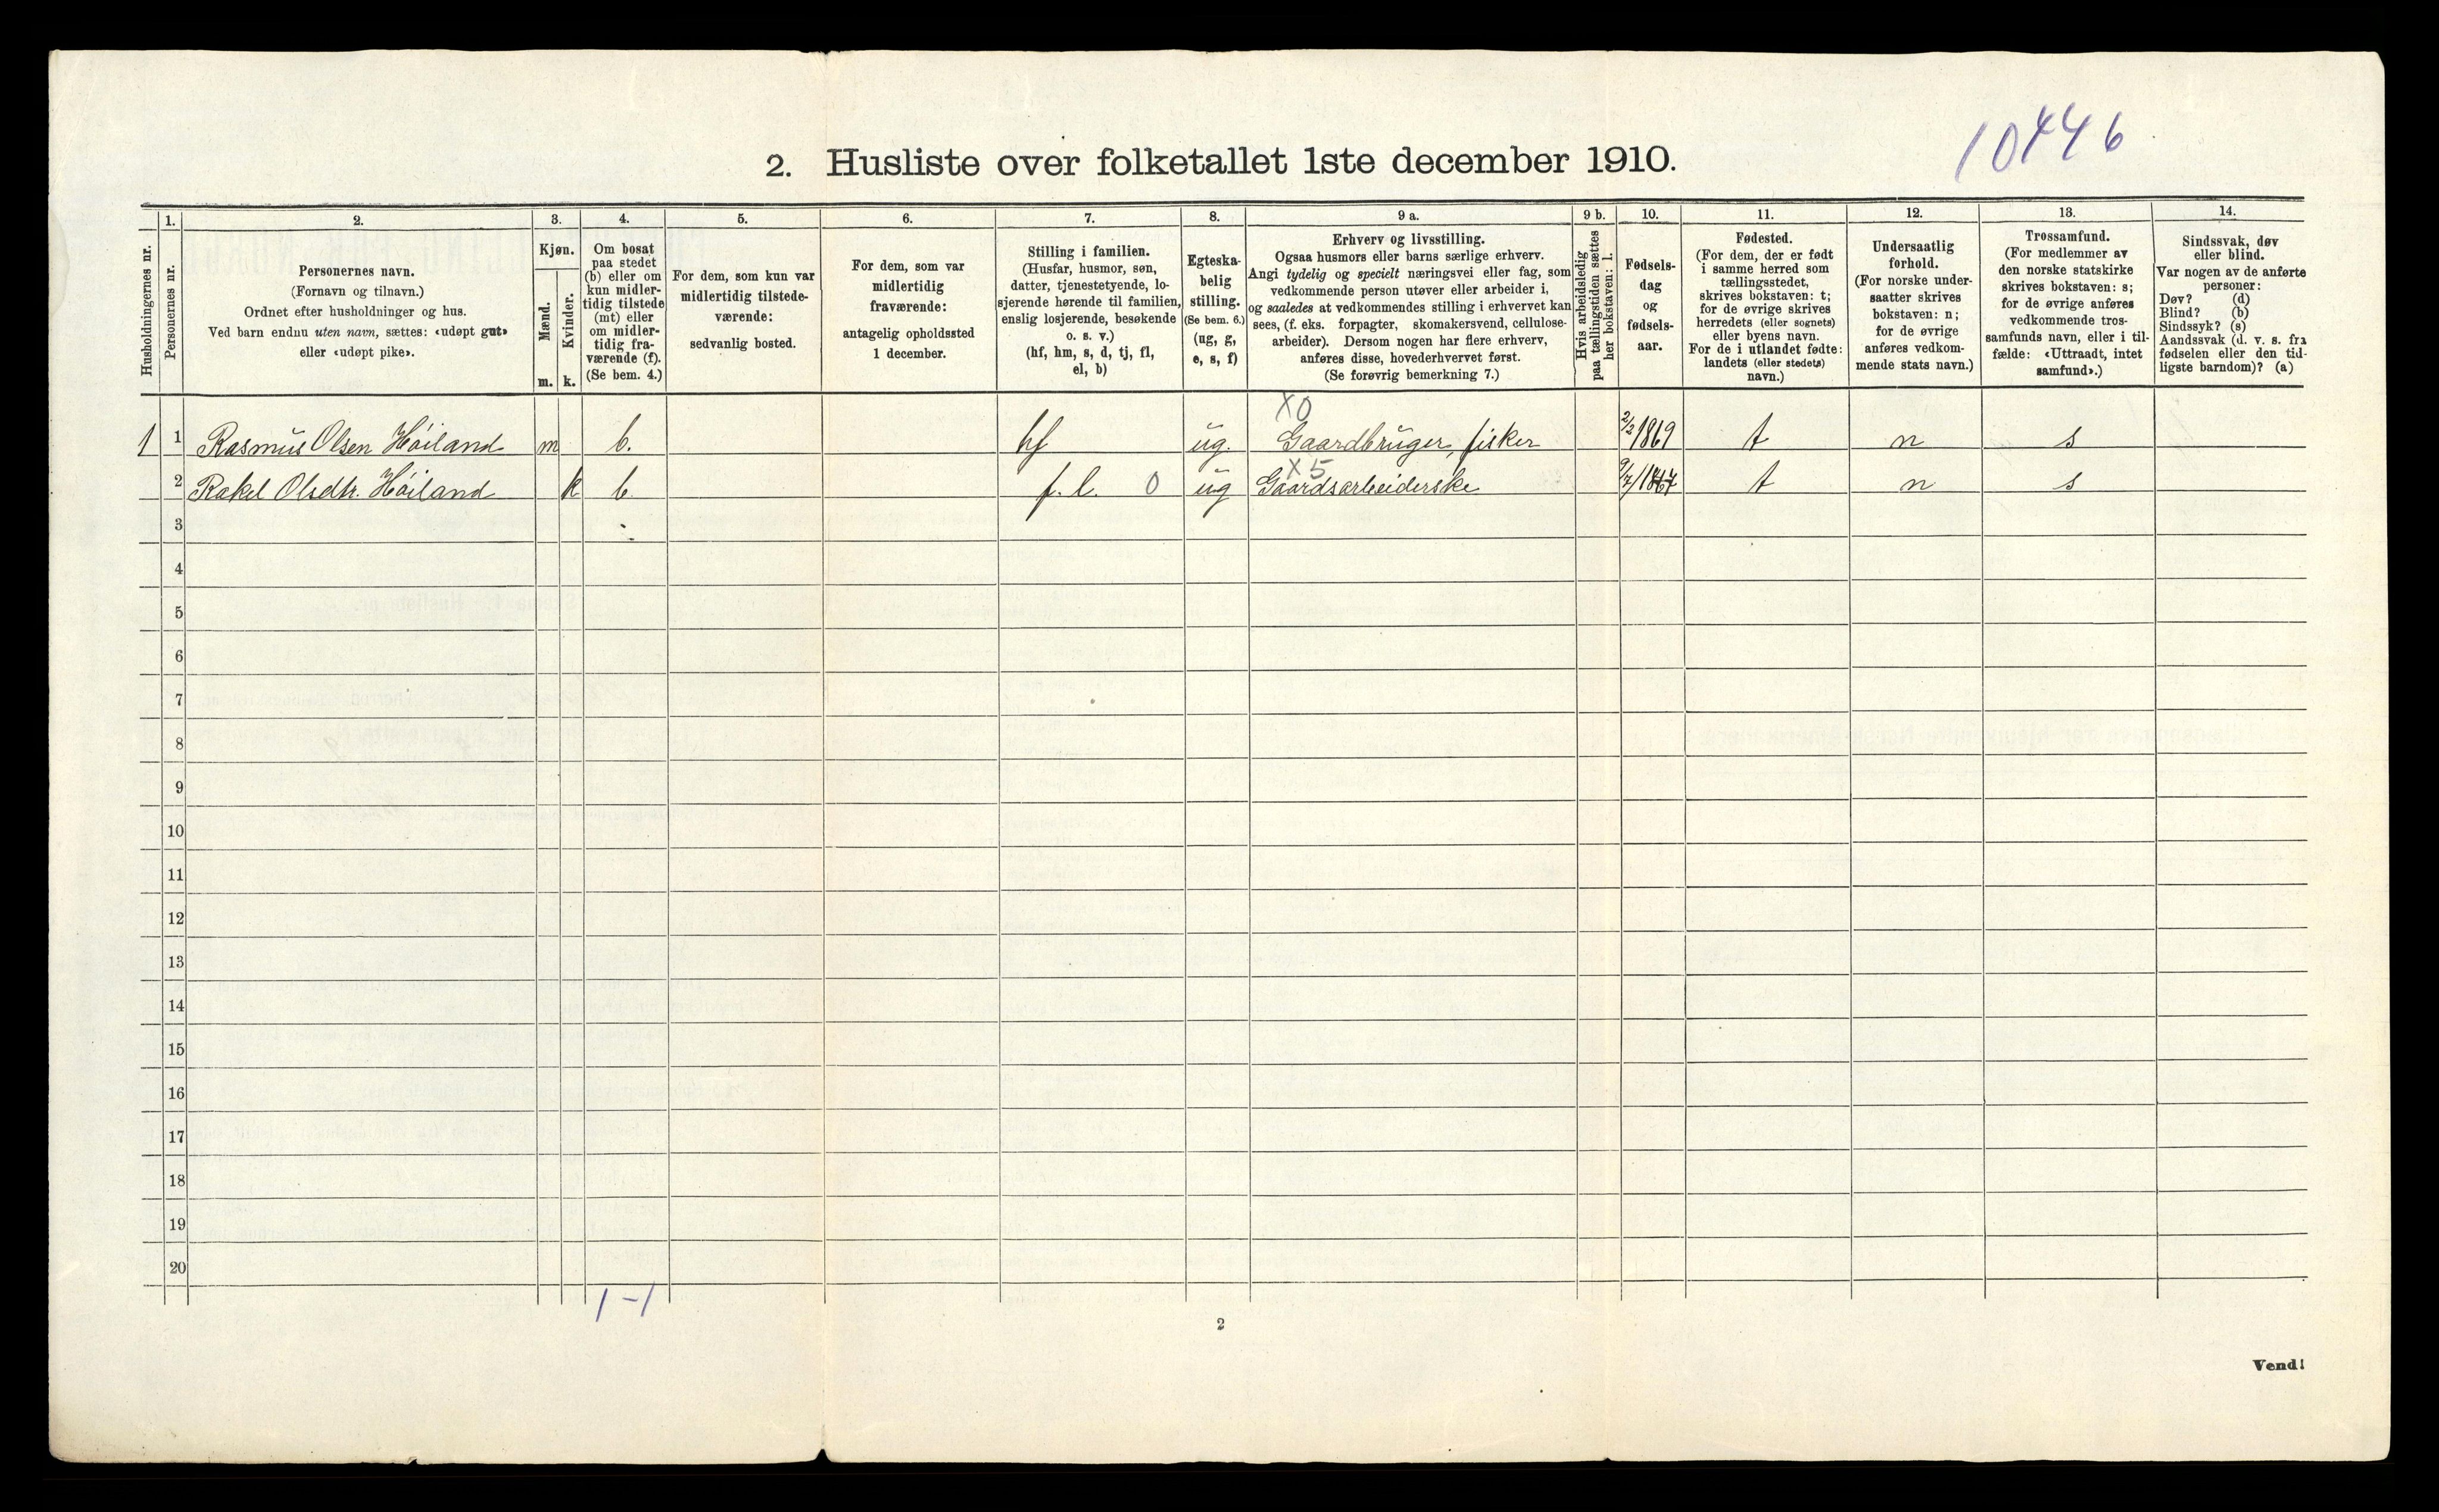 10446
2. Husliste over folketallet 1ste december 1910.
Husholdningernes nr.
1.
Personernes nr.
2.
Personernes navn.
(Fornavn og tilnavn.)
Ordnet efter husholdninger og hus.
Ved barn endnu uten navn, sættes: «udøpt gut»
eller «udøpt pike».
3.
Kjøn.
Mænd.
Kvinder.
m. k.
4.
Om bosat
paa stedet
(b) eller om
kun midler-
tidig tilstede
(mt) eller
om midler-
tidig fra-
værende (f).
(Se bem. 4.)
5.
For dem, som kun var
midlertidig tilstede-
værende:
sedvanlig bosted.
6.
For dem, som var
midlertidig
fraværende:
antagelig opholdssted
1 december.
7.
Stilling i familien.
(Husfar, husmor, søn,
datter, tjenestetyende, lo-
sjerende hørende til familien,
enslig losjerende, besøkende
o. s. v.)
(hf, hm, s, d, tj, fl,
el, b)
8.
Egteska-
belig
stilling.
(Se bem. 6.)
(ug, g,
e, s, f)
9 a.
Erhverv og livsstilling.
Ogsaa husmors eller barns særlige erhverv.
Angi tydelig og specielt næringsvei eller fag, som
vedkommende person utøver eller arbeider i,
og saaledes at vedkommendes stilling i erhvervet kan
sees, (f. eks. forpagter, skomakersvend, cellulose-
arbeider). Dersom nogen har flere erhverv,
anføres disse, hovederhvervet først.
(Se forøvrig bemerkning 7.)
9 b.
Hvis arbeidsledig
paa tællingstiden sættes
her bokstaven: l.
10.
Fødsels-
dag
og
fødsels-
aar.
11.
Fødested.
(For dem, der er født
i samme herred som
tællingsstedet,
skrives bokstaven: t;
for de øvrige skrives
herredets (eller sognets)
eller byens navn.
For de i utlandet fødte:
landets (eller stedets)
navn.)
12.
Undersaatlig
forhold.
(For norske under-
saatter skrives
bokstaven: n;
for de øvrige
anføres vedkom-
mende stats navn.)
13.
Trossamfund.
(For medlemmer av
den norske statskirke
skrives bokstaven: s;
for de øvrige anføres
vedkommende tros-
samfunds navn, eller i til-
fælde: «Uttraadt, intet
samfund».)
14.
Sindssvak, døv
eller blind.
Var nogen av de anførte
personer:
Døv? (d)
Blind? (b)
Sindssyk? (s)
Aandssvak (d. v. s. fra
fødselen eller den tid-
ligste barndom)? (a)
X0
1 1 Rasmus Olsen Høiland m b. hf ug. Gaardbruger, fisker 2/2 1869 t n s
X5
2 Rakel Olsdtr. Høiland k b f. l. 0 ug Gaardsarbeiderske 9/7 t n s
3
4
5
6
7
8
9
10
11
12
13
14
15
16
17
18
19
20
1 - 1
2
Vend!